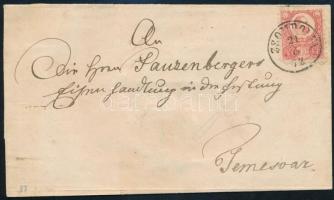 An
Die Herrn Pauzenbergers
Eisenhandlung in der Festung
Temesvar